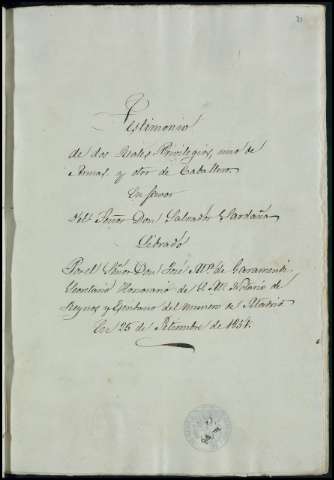 Testimonio
de dos Reales Privilegios, uno de
Armas, y otro de Caballero
En favor
del Señor Don Salvador Sardaña
Librado
Por el Señor Don José Mª. de Garamendi
Secretario Honorario de S. M. Notario de
Reynos y Escribano del numero de Madrid
En 26 de Setiembre de 1851.